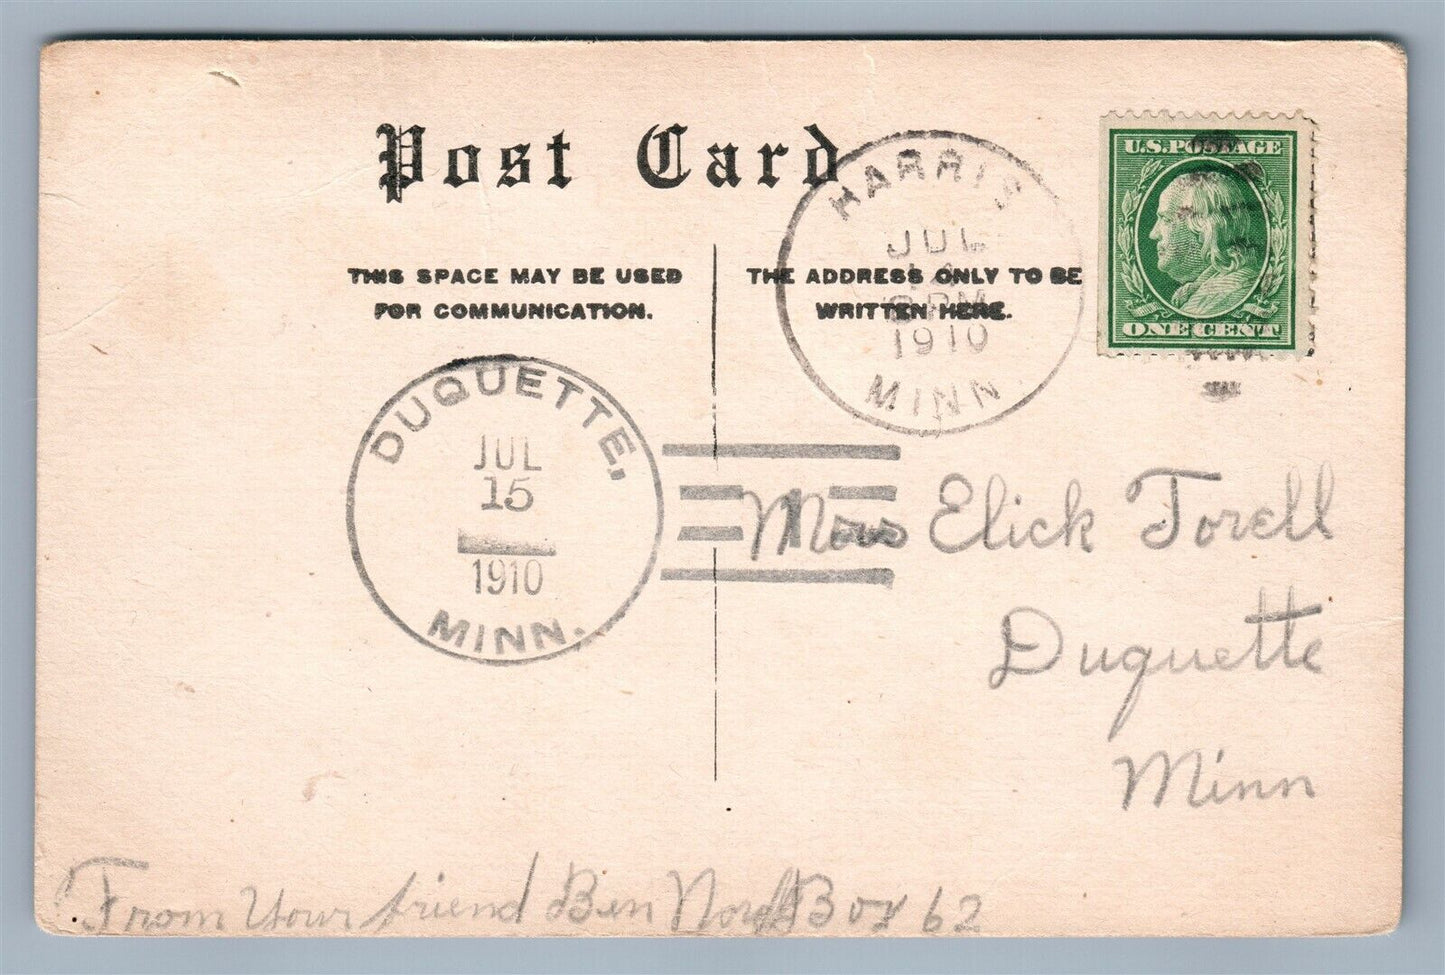 Post Card
THIS SPACE MAY BE USED
FOR COMMUNICATION.
THE ADDRESS ONLY TO BE
WRITTEN HERE.
HARRIS
JUL
14
PM
1910
MINN.
U.S. POSTAGE
ONE CENT
DUQUETTE,
JUL
15
1910
MINN.
Elick Torell
Duquette
Minn
From Your friend Ben Box 62